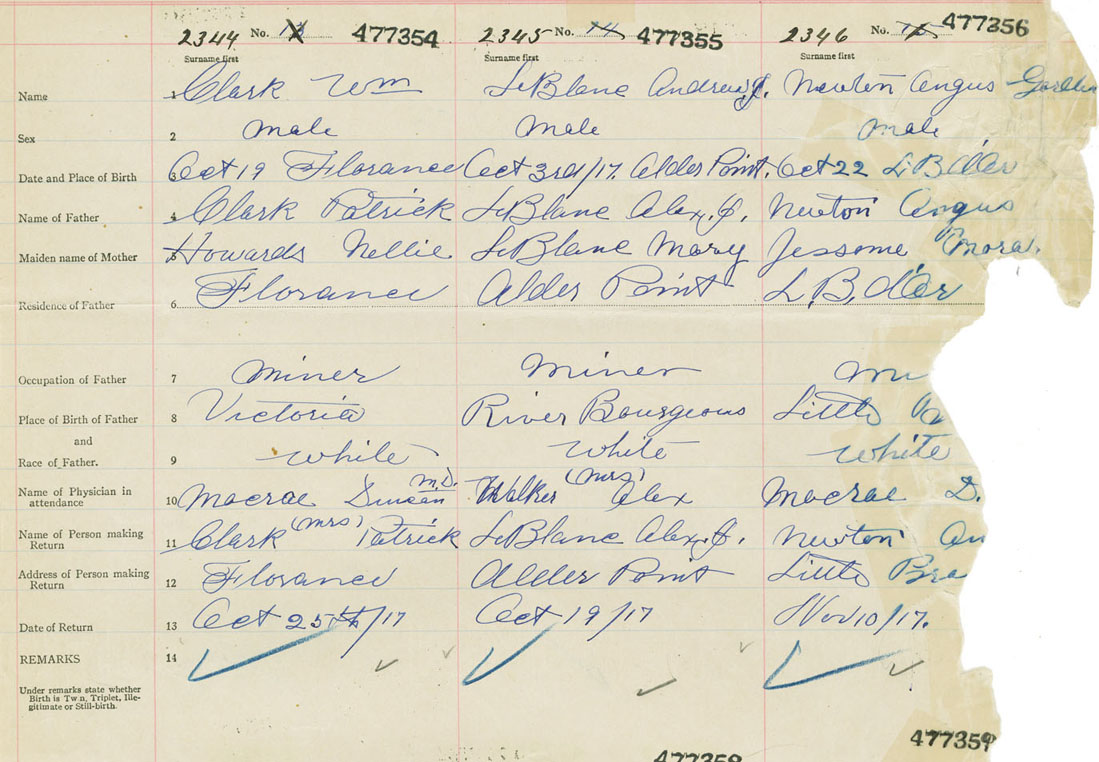 2344 No. 13 477354 2345 No. 14 477355 2346 No. 15 477356
Surname first Surname first Surname first
Name 1 Clark Wm LeBlanc Andrew J. Newton Angus Gordon
Sex 2 male Male male
Date and Place of Birth 3 Oct 19 Florance Oct 3rd/17. Alder Point. Oct 22 L B d'Or
Name of Father 4 Clark Patrick LeBlanc Alex. J. Newton Angus
Maiden name of Mother 5 Howards Nellie LeBlanc Mary Jessome,
Residence of Father 6 Florance Alder Point L. B. d'Or
Occupation of Father 7 miner miner
Place of Birth of Father 8 Victoria River Bourgeous Little
and
Race of Father. 9 white White White
Name of Physician in attendance 10 Macrae Duncan M.D. Walker (Mrs) Alex Macrae D.
Name of Person making Return 11 Clark (Mrs) Patrick LeBlanc Alex. J. Newton An
Address of Person making Return 12 Florance Alder Point Little Bra
Date of Return 13 Oct 25th/17 Oct 19/17 Nov 10/17.
REMARKS 14
Under remarks state whether
Birth is Twin, Triplet, Ille-
gitimate or Still-birth.
477359
477358